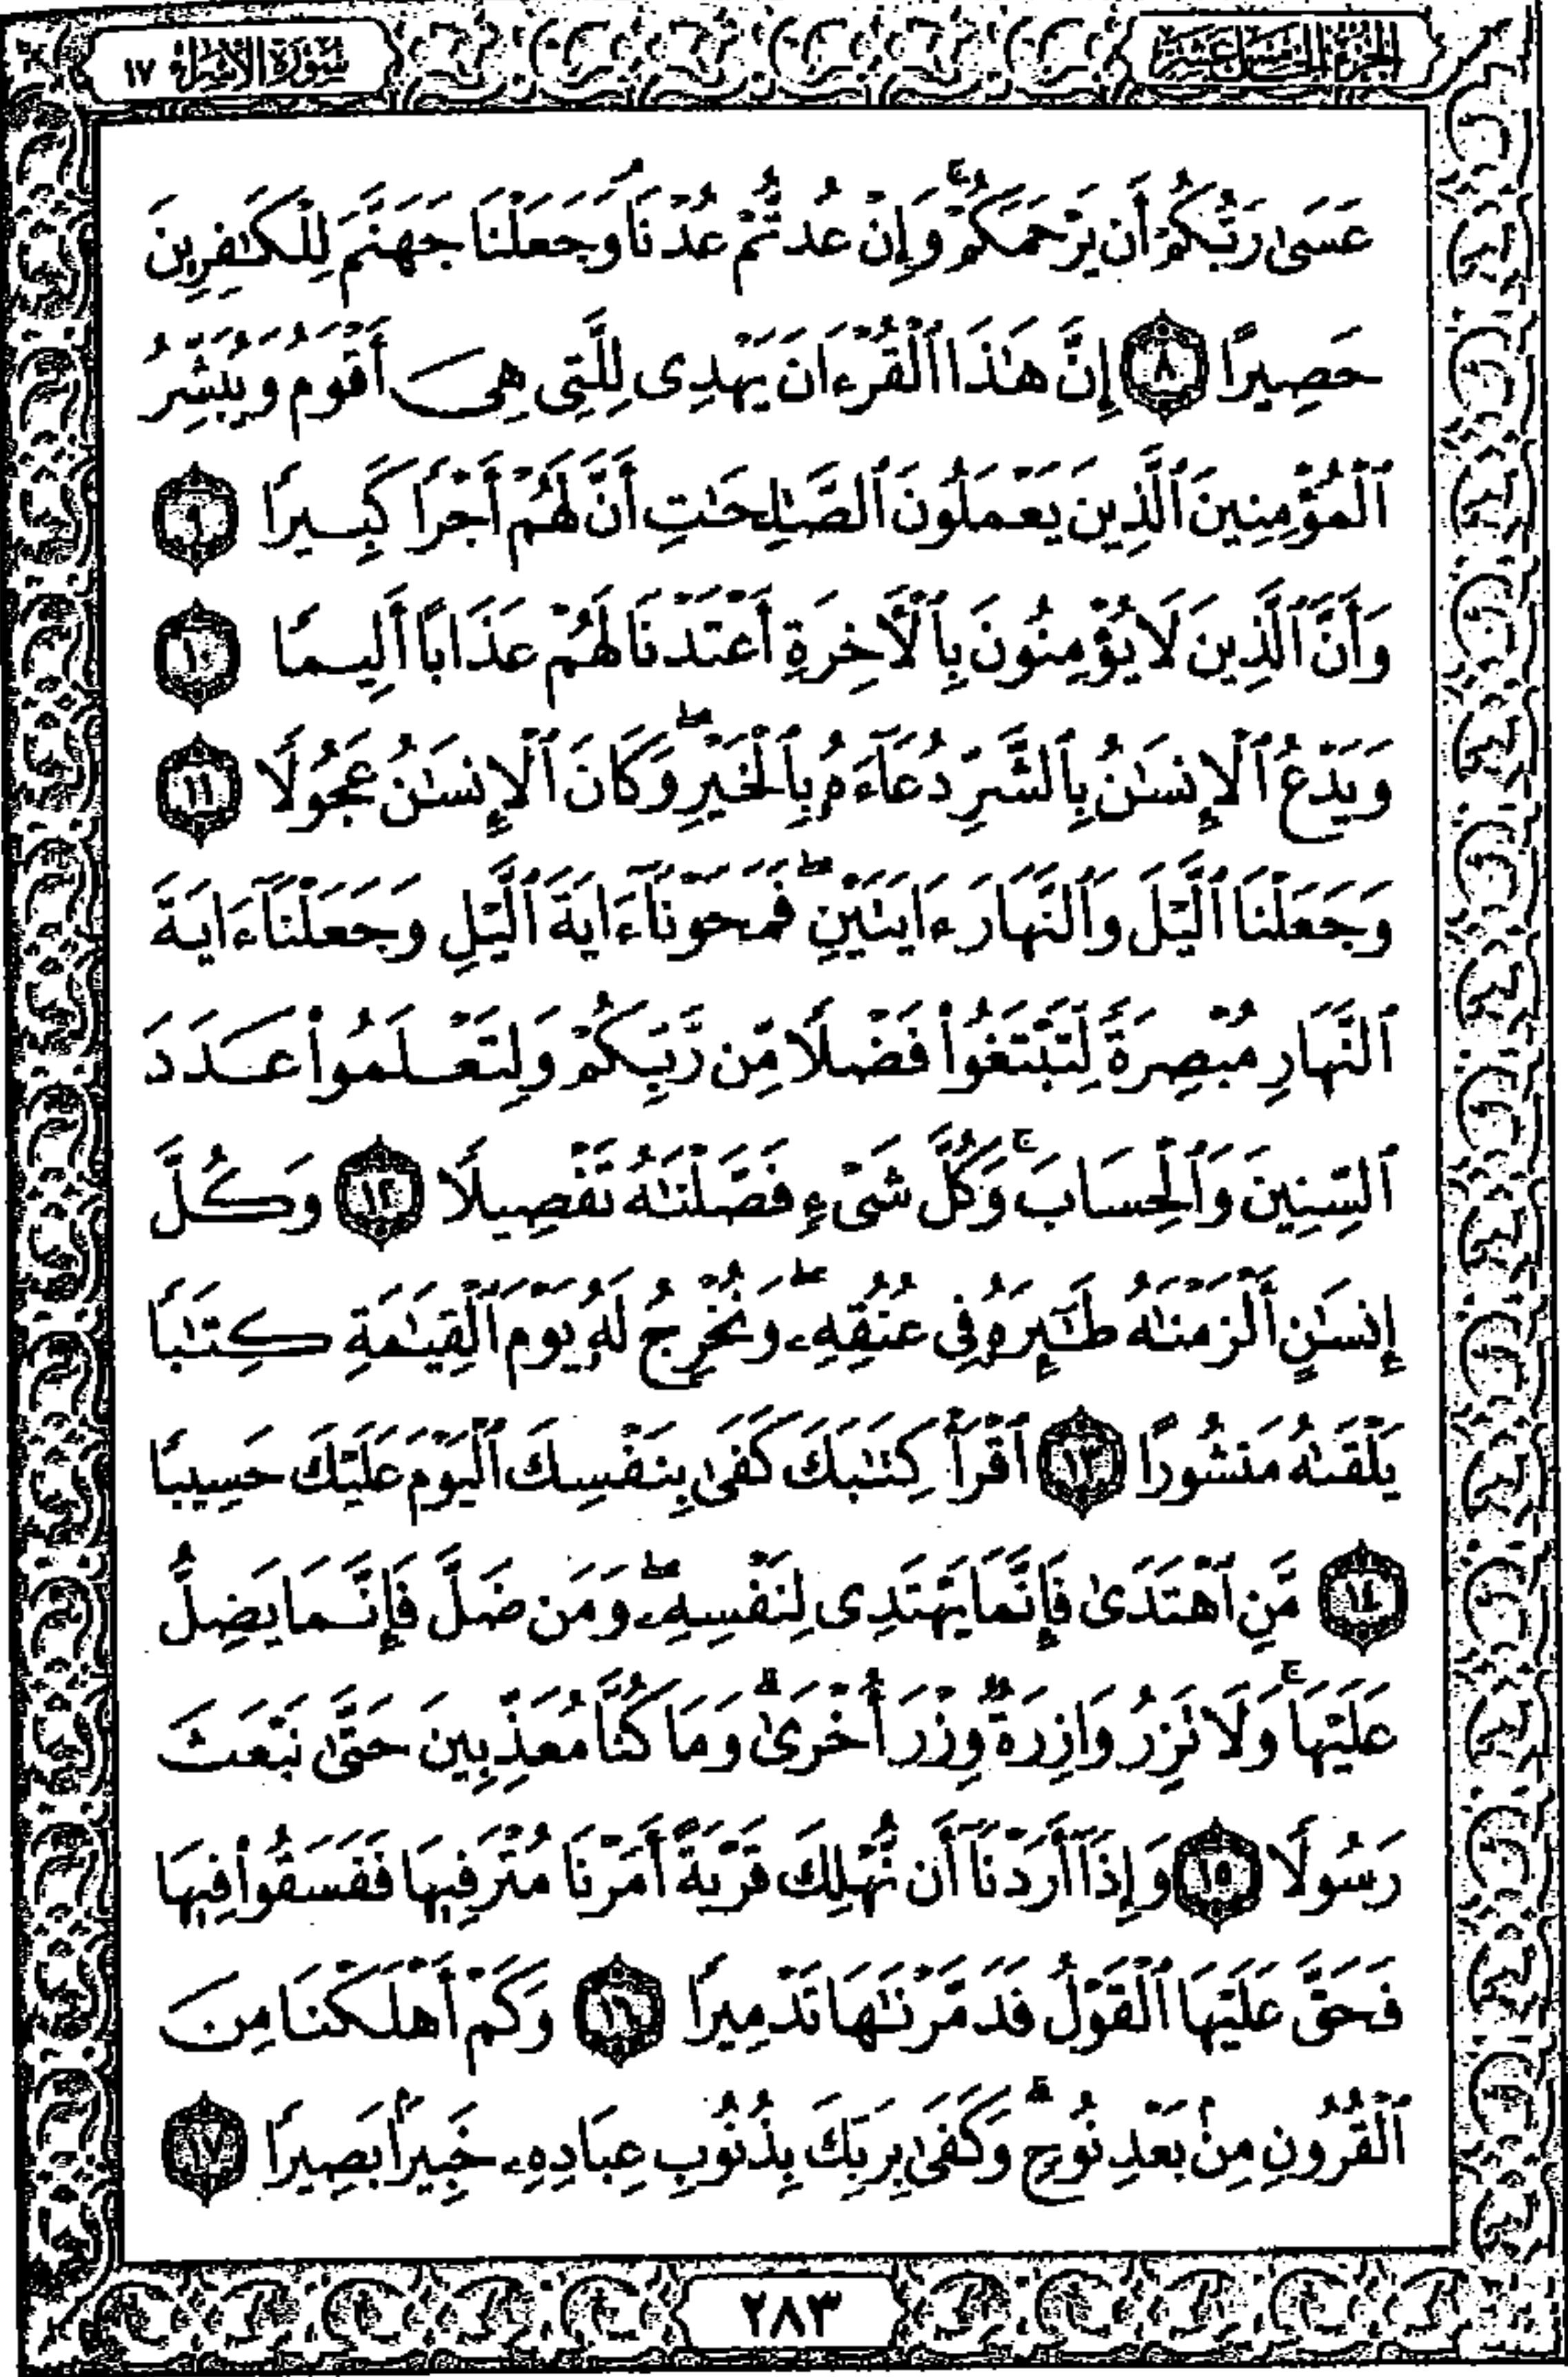 الجزء الخامس عشر
سورة الإسراء ١٧
عَسَىٰ رَبُّكُمْ أَن يَرْحَمَكُمْ ۚ وَإِنْ عُدتُّمْ عُدْنَا ۘ وَجَعَلْنَا جَهَنَّمَ لِلْكَـٰفِرِينَ
حَصِيرًا ٨ إِنَّ هَـٰذَا ٱلْقُرْءَانَ يَهْدِى لِلَّتِى هِىَ أَقْوَمُ وَيُبَشِّرُ
ٱلْمُؤْمِنِينَ ٱلَّذِينَ يَعْمَلُونَ ٱلصَّـٰلِحَـٰتِ أَنَّ لَهُمْ أَجْرًا كَبِيرًا ٩
وَأَنَّ ٱلَّذِينَ لَا يُؤْمِنُونَ بِٱلْـَٔاخِرَةِ أَعْتَدْنَا لَهُمْ عَذَابًا أَلِيمًا ١٠
وَيَدْعُ ٱلْإِنسَـٰنُ بِٱلشَّرِّ دُعَآءَهُۥ بِٱلْخَيْرِ ۖ وَكَانَ ٱلْإِنسَـٰنُ عَجُولًا ١١
وَجَعَلْنَا ٱلَّيْلَ وَٱلنَّهَارَ ءَايَتَيْنِ ۖ فَمَحَوْنَآ ءَايَةَ ٱلَّيْلِ وَجَعَلْنَآ ءَايَةَ
ٱلنَّهَارِ مُبْصِرَةً لِّتَبْتَغُوا۟ فَضْلًا مِّن رَّبِّكُمْ وَلِتَعْلَمُوا۟ عَدَدَ
ٱلسِّنِينَ وَٱلْحِسَابَ ۚ وَكُلَّ شَىْءٍ فَصَّلْنَـٰهُ تَفْصِيلًا ١٢ وَكُلَّ
إِنسَـٰنٍ أَلْزَمْنَـٰهُ طَـٰٓئِرَهُۥ فِى عُنُقِهِۦ ۖ وَنُخْرِجُ لَهُۥ يَوْمَ ٱلْقِيَـٰمَةِ كِتَـٰبًا
يَلْقَىٰهُ مَنشُورًا ١٣ ٱقْرَأْ كِتَـٰبَكَ كَفَىٰ بِنَفْسِكَ ٱلْيَوْمَ عَلَيْكَ حَسِيبًا
١٤ مَّنِ ٱهْتَدَىٰ فَإِنَّمَا يَهْتَدِى لِنَفْسِهِۦ ۖ وَمَن ضَلَّ فَإِنَّمَا يَضِلُّ
عَلَيْهَا ۚ وَلَا تَزِرُ وَازِرَةٌ وِزْرَ أُخْرَىٰ ۗ وَمَا كُنَّا مُعَذِّبِينَ حَتَّىٰ نَبْعَثَ
رَسُولًا ١٥ وَإِذَآ أَرَدْنَآ أَن نُّهْلِكَ قَرْيَةً أَمَرْنَا مُتْرَفِيهَا فَفَسَقُوا۟ فِيهَا
فَحَقَّ عَلَيْهَا ٱلْقَوْلُ فَدَمَّرْنَـٰهَا تَدْمِيرًا ١٦ وَكَمْ أَهْلَكْنَا مِنَ
ٱلْقُرُونِ مِنۢ بَعْدِ نُوحٍ ۗ وَكَفَىٰ بِرَبِّكَ بِذُنُوبِ عِبَادِهِۦ خَبِيرًۢا بَصِيرًا ١٧
٢٨٣